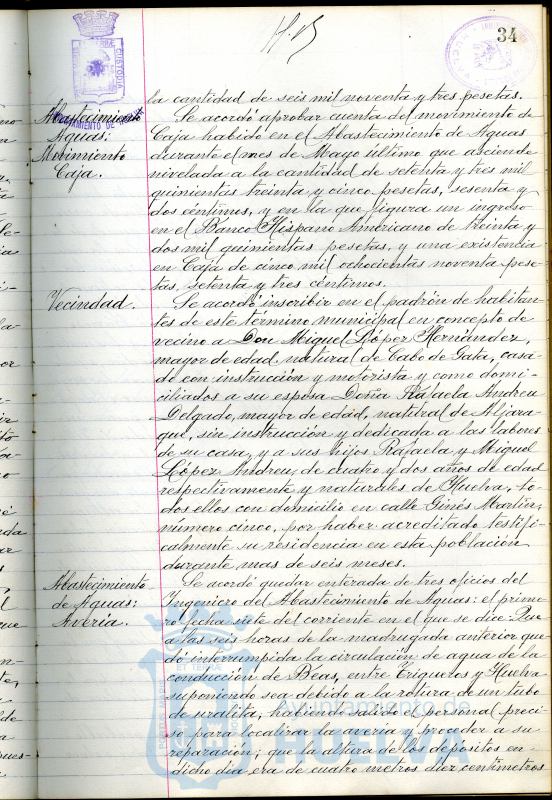 34
la cantidad de seis mil noventa y tres pesetas.
Abastecimiento
Aguas:
Movimiento
Caja.
Se acordó aprobar cuenta del movimiento de
Caja habido en el Abastecimiento de Aguas
durante el mes de Mayo último que asciende
nivelada a la cantidad de setenta y tres mil
quinientas treinta y cinco pesetas, sesenta y
dos céntimos, y en la que figura un ingreso
en el Banco Hispano Americano de treinta y
dos mil quinientas pesetas, y una existencia
en Caja de cinco mil ochocientas noventa pese-
tas, setenta y tres céntimos.
Vecindad.
Se acordó inscribir en el padrón de habitan-
tes de este término municipal en concepto de
vecino a Don Miguel López Hernández,
mayor de edad, natural de Cabo de Gata, casa-
do con instrucción y motorista y como domi-
ciliados a su esposa Doña Rafaela Andreu
Delgado, mayor de edad, natural de Aljara-
que, sin instrucción y dedicada a las labores
de su casa, y a sus hijos Rafaela y Miguel
López Andreu, de cuatro y dos años de edad
respectivamente y naturales de Huelva, to-
dos ellos con domicilio en calle Ginés Martín,
número cinco, por haber acreditado testifi-
calmente su residencia en esta población
durante mas de seis meses.
Abastecimiento
de Aguas:
Avería.
Se acordó quedar enterada de tres oficios del
Ingeniero del Abastecimiento de Aguas: el prime-
ro fecha siete del corriente en el que se dice: Que
a las seis horas de la madrugada anterior que-
dó interrumpida la circulación de agua de la
conducción de Beas, entre Trigueros y Huelva
suponiendo sea debido a la rotura de un tubo
de uralita, habiendo salido el personal preci-
so para localizar la avería y proceder a su
reparación; que la altura de los depósitos en
dicho día era de cuatro metros diez centímetros
Ayuntamiento de
HUELVA